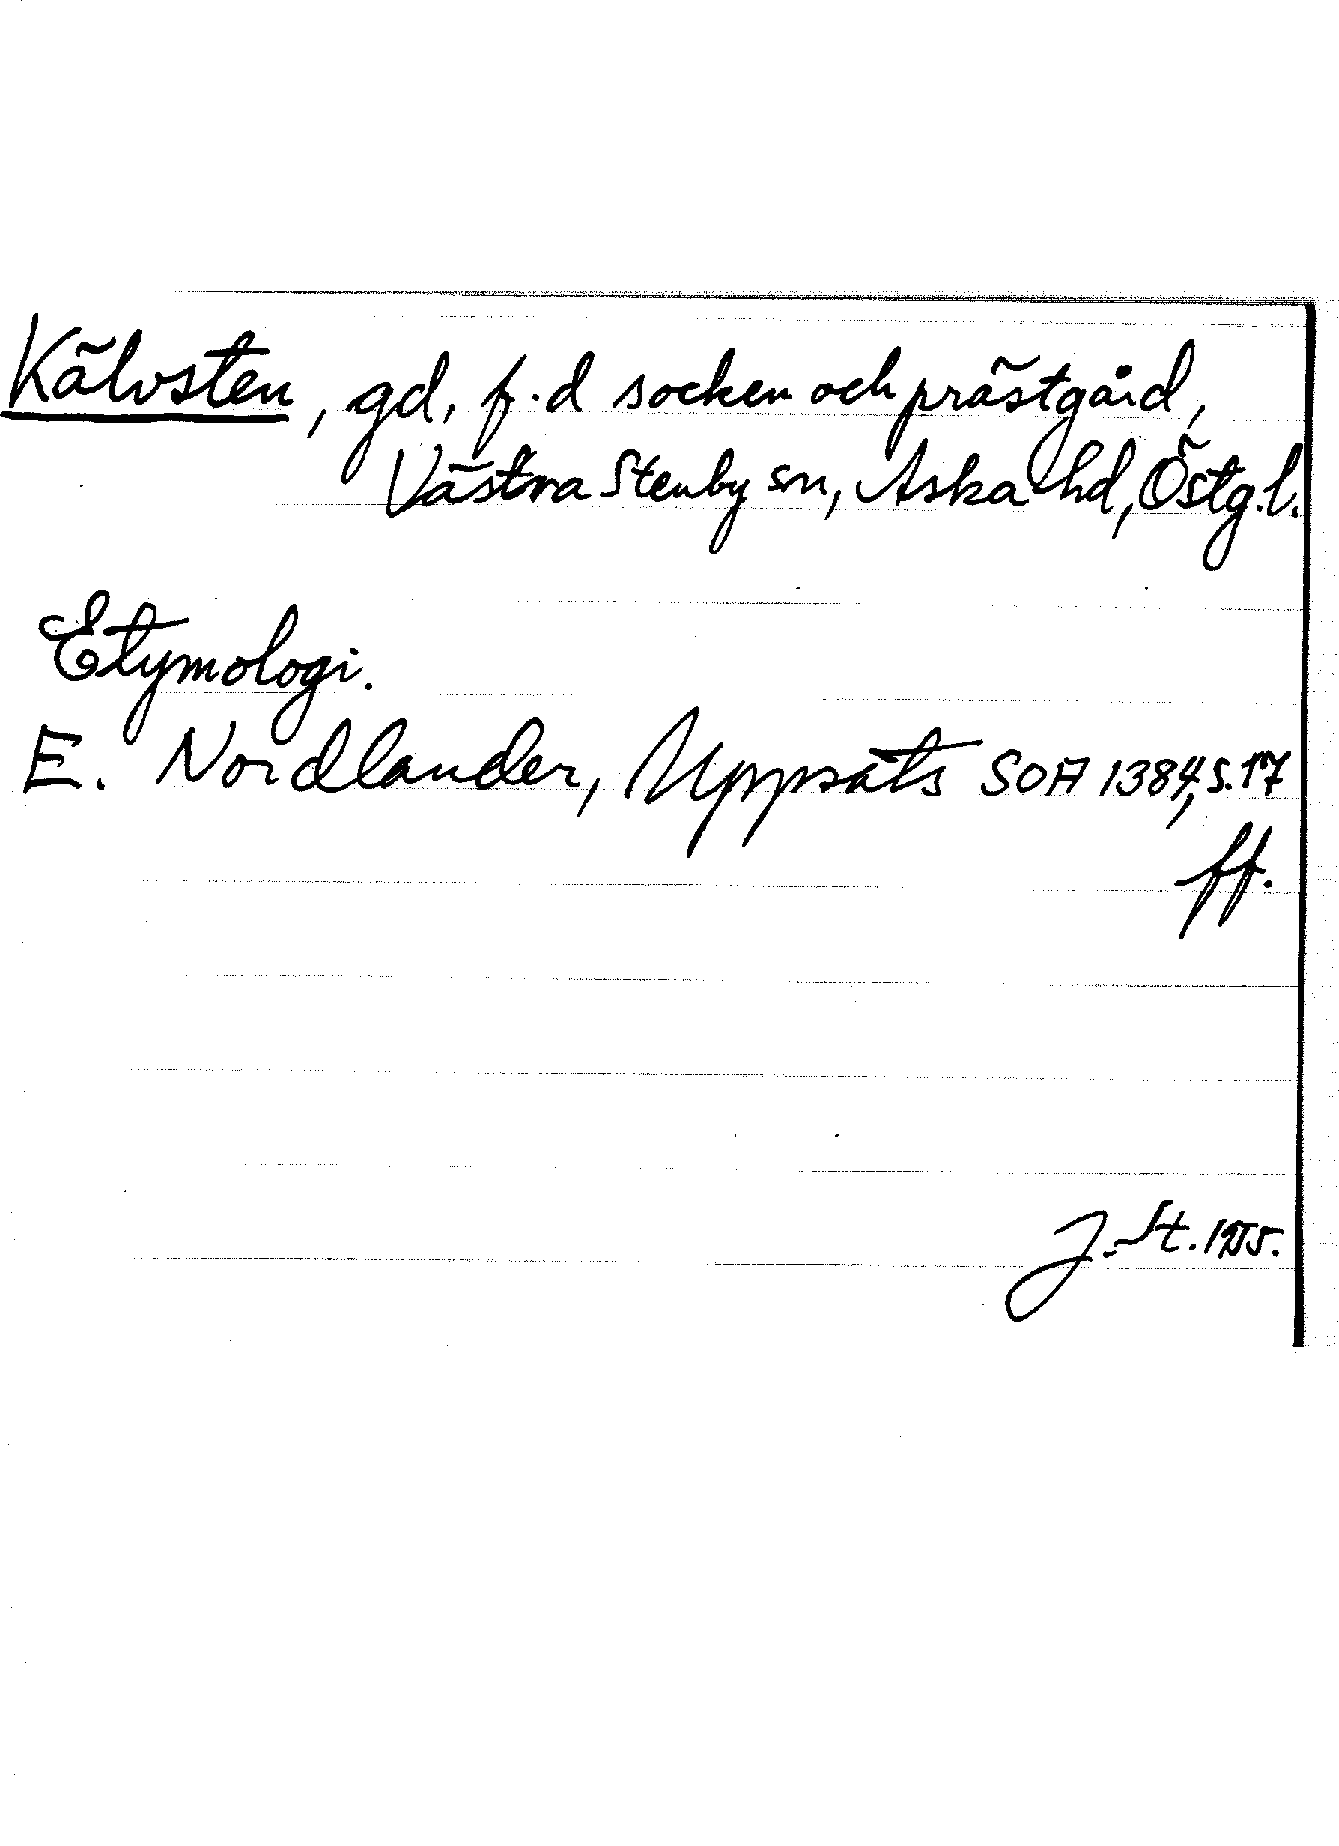 Kälvsten, gd, f.d socken och prästgård,
Västra Stenby sn, Aska hd, Östg.l.
Etymologi.
E. Nordlander, Uppsats SOA 1384, s.17
ff.
J. St. 1955.